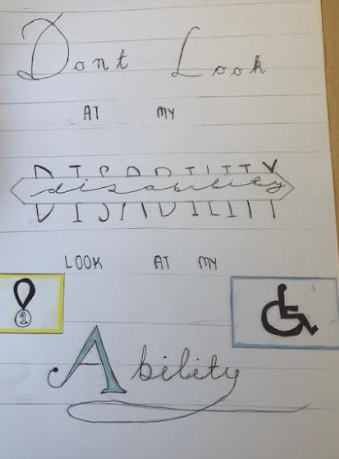 Dont Look
AT MY
DISABILITY
disability
LOOK AT MY
1
Ability